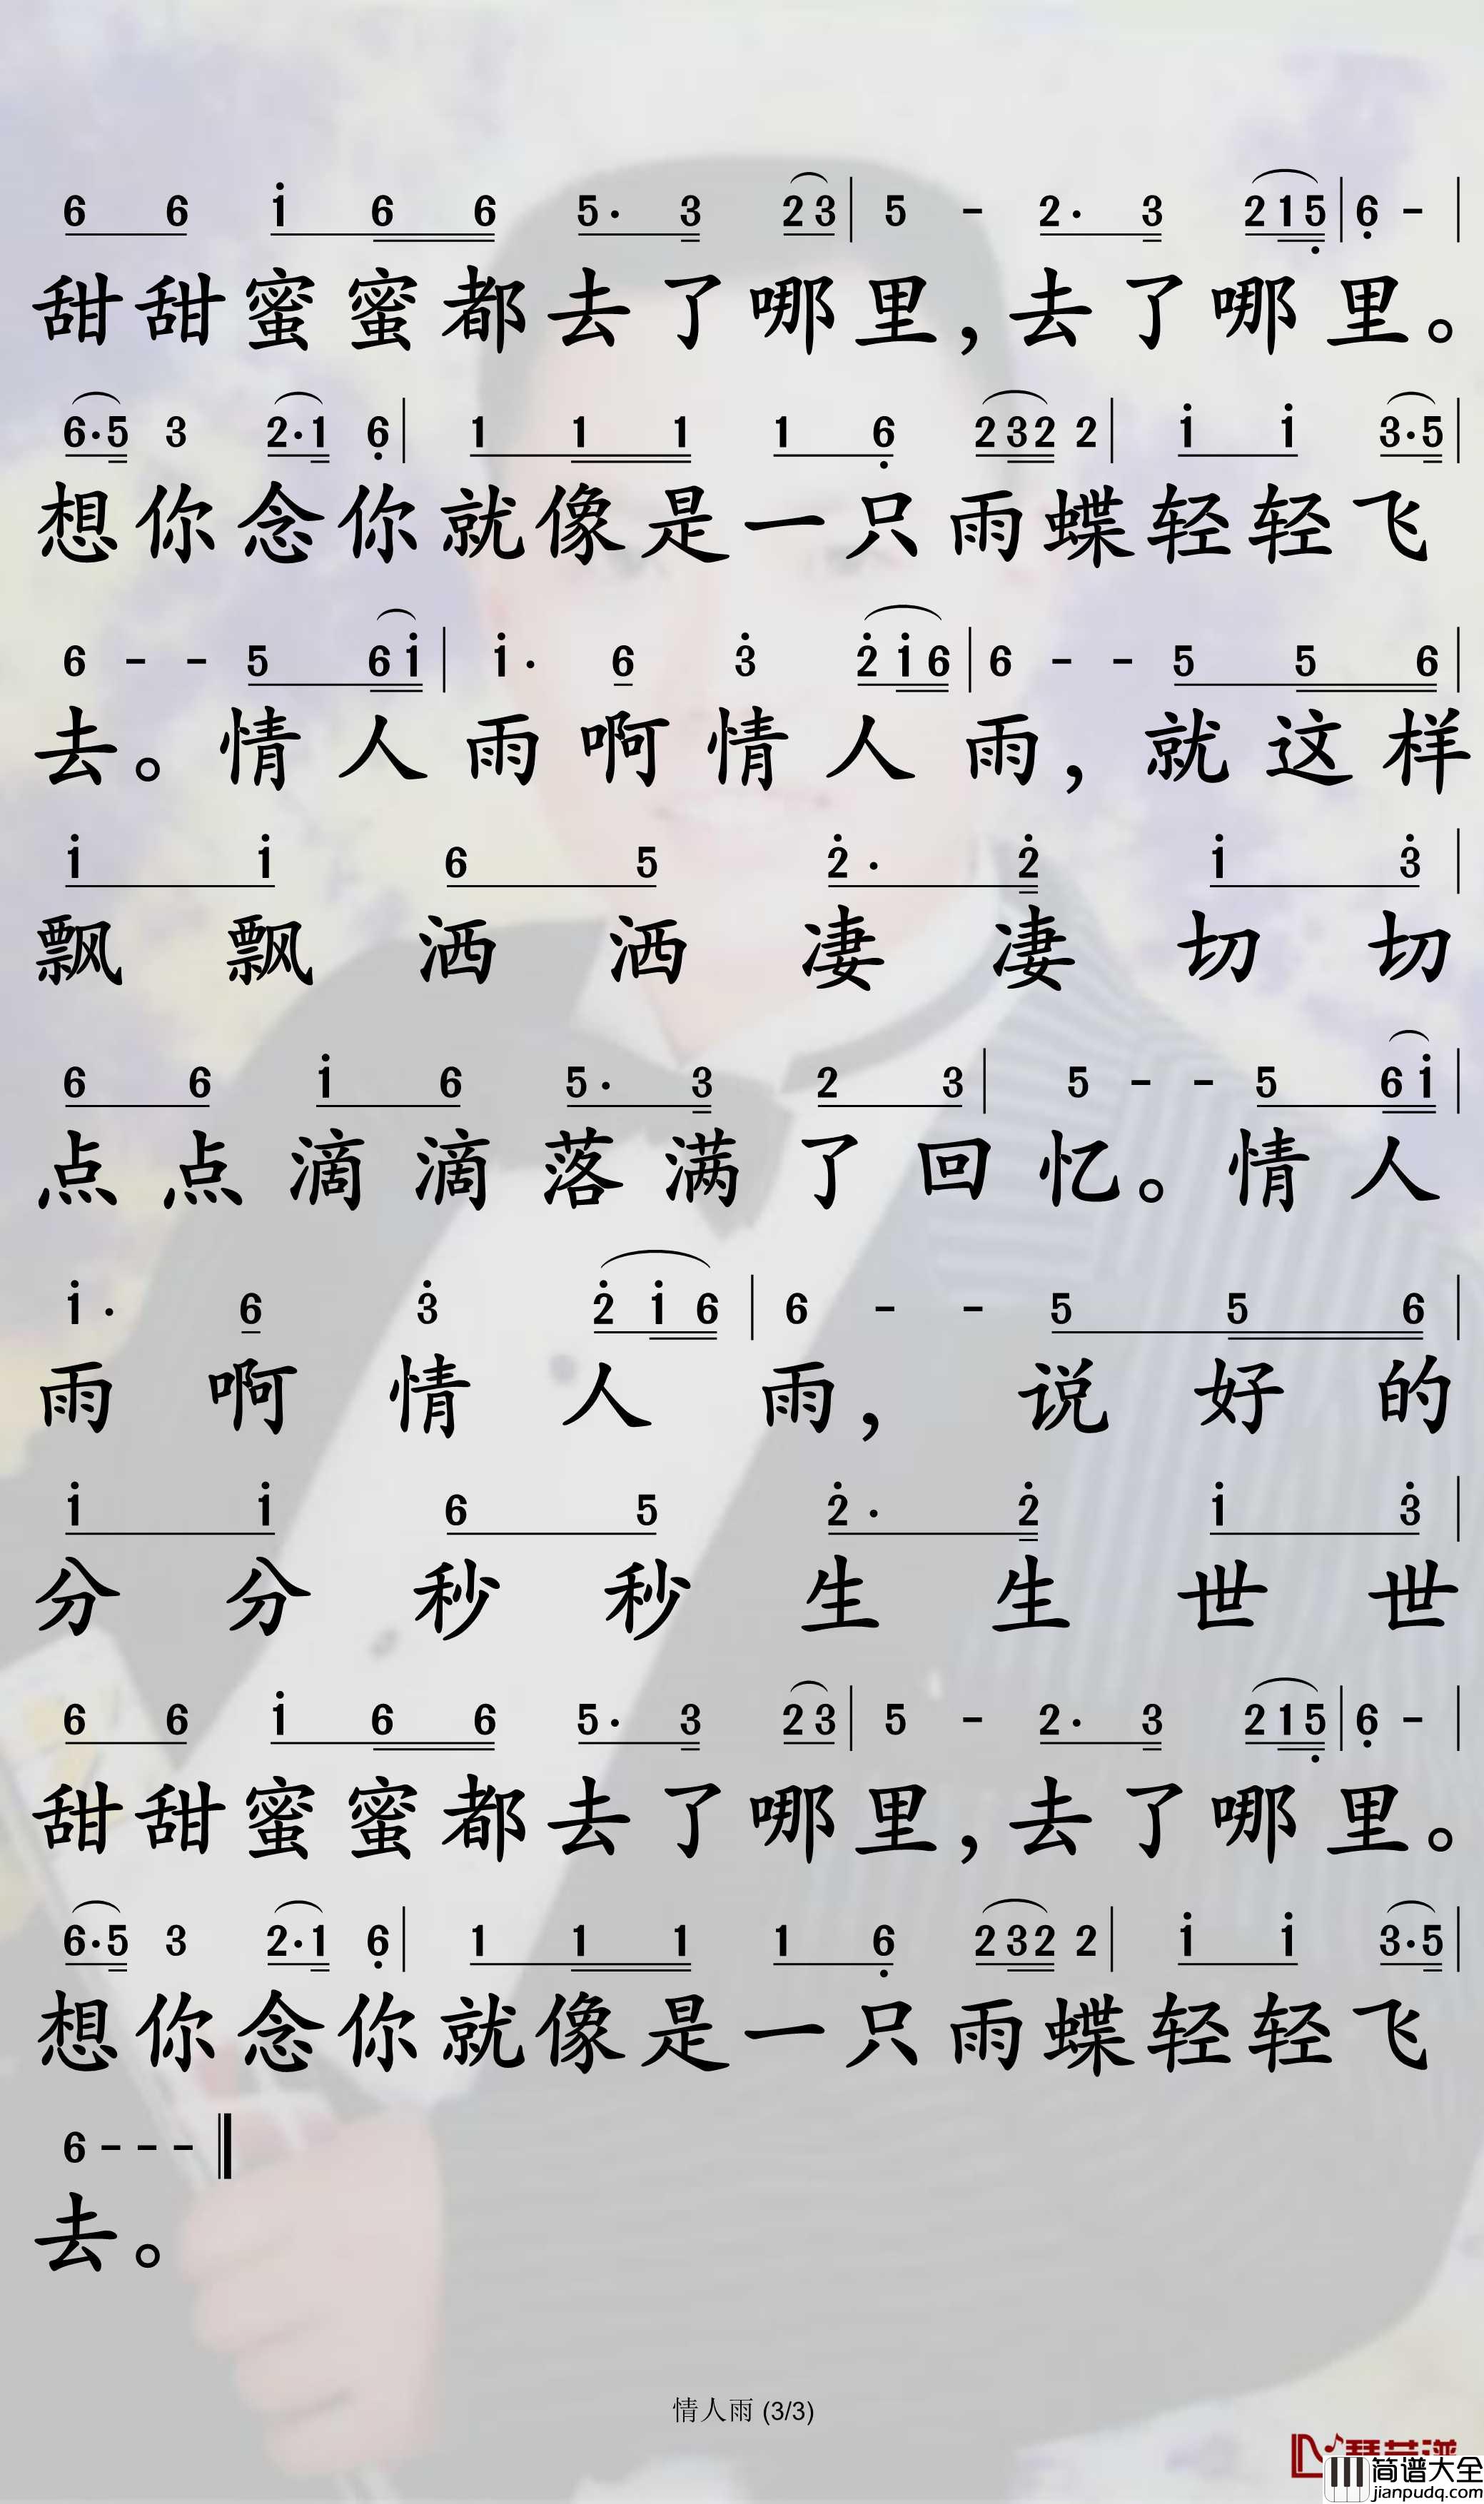 6 6 i 6 6 5· 3 2 3 | 5 - 2· 3 2 1 5 | 6 - |
甜甜蜜蜜都去了哪里,去了哪里。
6·5 3 2·1 6 | 1 1 1 1 6 2 3 2 2 | i i 3·5 |
想你念你就像是一只雨蝶轻轻飞
6 - - 5 6 i | i· 6 3 2 i 6 | 6 - - 5 5 6 |
去。情人雨啊情人雨,就这样
i i 6 5 2· 2 i 3 |
飘飘洒洒凄凄切切
6 6 i 6 5· 3 2 3 | 5 - - 5 6 i |
点点滴滴落满了回忆。情人
i· 6 3 2 i 6 | 6 - - 5 5 6 |
雨啊情人雨,说好的
i i 6 5 2· 2 i 3 |
分分秒秒生生世世
6 6 i 6 6 5· 3 2 3 | 5 - 2· 3 2 1 5 | 6 - |
甜甜蜜蜜都去了哪里,去了哪里。
6·5 3 2·1 6 | 1 1 1 1 6 2 3 2 2 | i i 3·5 |
想你念你就像是一只雨蝶轻轻飞
6 - - - ‖
去。
情人雨 (3/3)
简谱大全
jianpudq.com